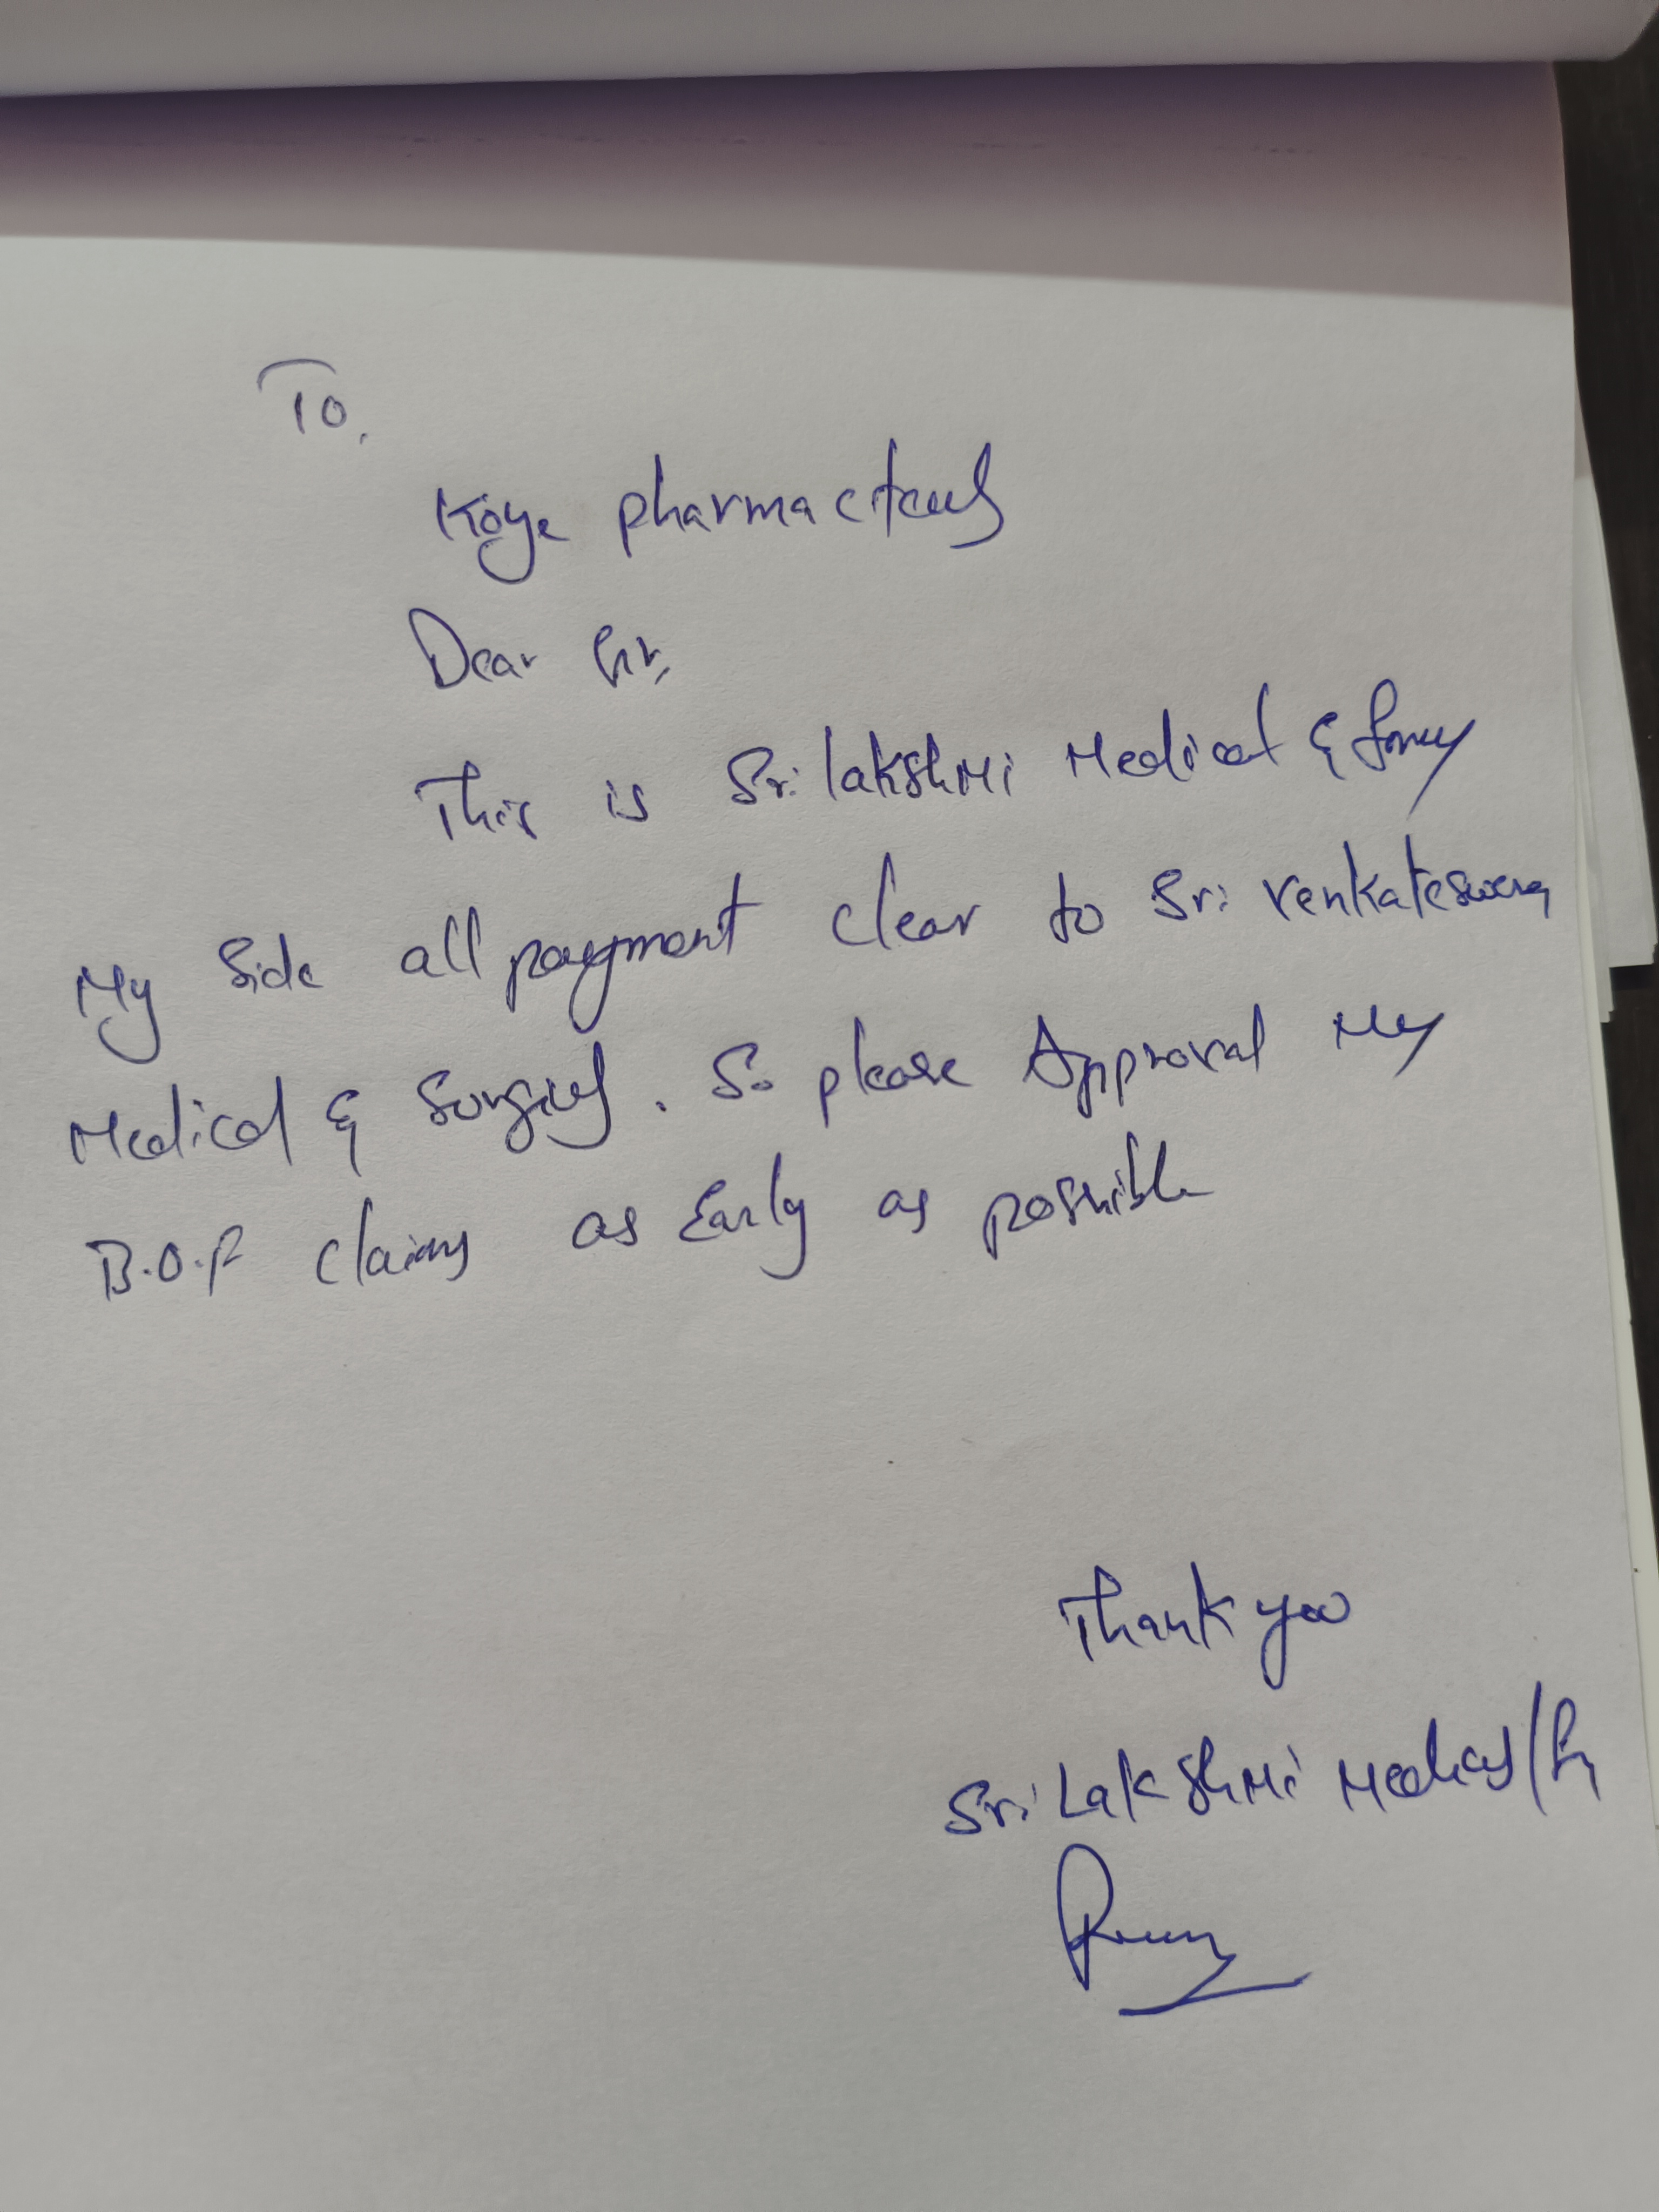 To,
Koye pharmaciteuls
Dear Sir,
This is Sri lakshmi Medical &
My Side all payment clear to Sri Venkateswera
Medical & Surgicals. So please Approval My
B.O.F claims as Early as possible
Thank you
Sri Lakshmi Medicals